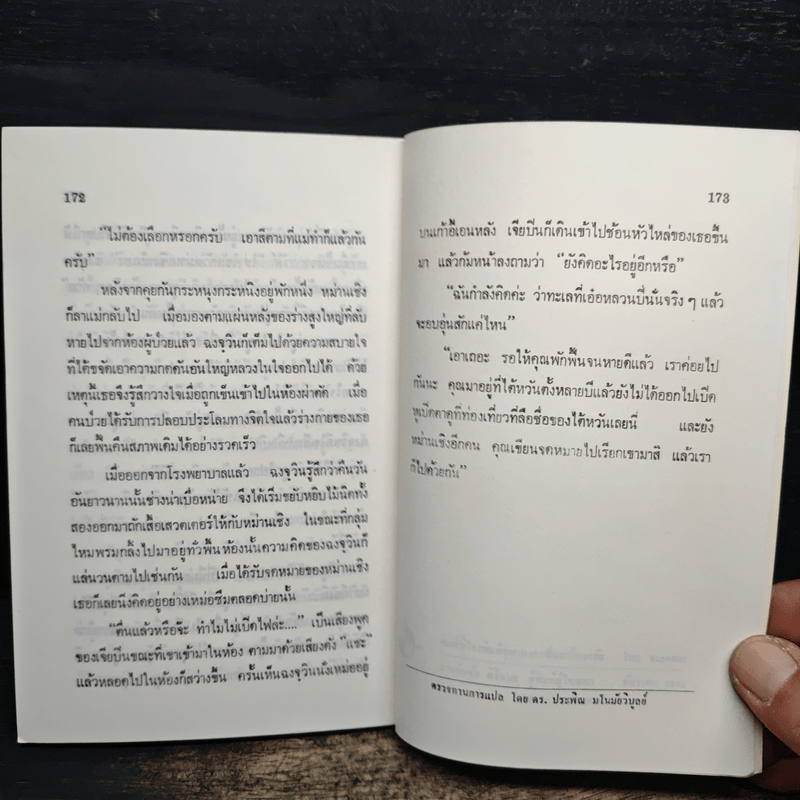 172
“ไม่ต้องเลือกหรอกครับ เอาสีตามที่แม่ทำก็แล้วกัน
ครับ”
หลังจากคุยกันกระหนุงกระหนิงอยู่พักหนึ่ง หม่านเชิง
ก็ลาแม่กลับไป เมื่อมองตามแผ่นหลังของร่างสูงใหญ่ที่ลับ
หายไปจากห้องผู้ป่วยแล้ว ฉงจุวินก็เต็มไปด้วยความสบายใจ
ที่ได้ขจัดเอาความกดดันอันใหญ่หลวงในใจออกไปได้ ด้วย
เหตุนี้เธอจึงรู้สึกวางใจเมื่อถูกเข็นเข้าไปในห้องผ่าตัด เมื่อ
คนป่วยได้รับการปลอบประโลมทางจิตใจแล้วร่างกายของเธอ
ก็เลยฟื้นคืนสภาพเดิมได้อย่างรวดเร็ว
เมื่อออกจากโรงพยาบาลแล้ว ฉงจุวินรู้สึกว่าคืนวัน
อันยาวนานนั้นช่างน่าเบื่อหน่าย จึงได้เริ่มขยับหยิบไม้นิตทั้ง
สองออกมาถักเสื้อเสวตเตอร์ให้กับหม่านเชิง ในขณะที่กลุ่ม
ไหมพรมกลิ้งไปมาอยู่ทั่วพื้นห้องนั้นความคิดของฉงจุวินก็
แล่นวนตามไปเช่นกัน เมื่อได้รับจดหมายของหม่านเชิง
เธอก็เลยนั่งคิดอยู่อย่างเหม่อซึมตลอดบ่ายนั้น
“ตื่นแล้วหรือจ๊ะ ทำไมไม่เปิดไฟล่ะ....” เป็นเสียงพูด
ของเจียปินขณะที่เขาเข้ามาในห้อง ตามมาด้วยเสียงดัง “แชะ”
แล้วหลอดไปในห้องก็สว่างขึ้น ครั้นเห็นฉงจุวินนั่งเหม่ออยู่
173
บนเก้าอี้เอนหลัง เจียปินก็เดินเข้าไปช้อนหัวไหล่ของเธอขึ้น
มา แล้วก้มหน้าลงถามว่า “ยังคิดอะไรอยู่อีกหรือ”
“ฉันกำลังคิดค่ะ ว่าทะเลที่เอ๋อหลวนปี้นั่นจริง ๆ แล้ว
จะอบอุ่นสักแค่ไหน”
“เอาเถอะ รอให้คุณพักฟื้นจนหายดีแล้ว เราค่อยไป
กันนะ คุณมาอยู่ที่ไต้หวันตั้งหลายปีแล้วยังไม่ได้ออกไปเปิด
หูเปิดตาดูที่ท่องเที่ยวที่ลือชื่อของไต้หวันเลยนี่ และยัง
หม่านเชิงอีกคน คุณเขียนจดหมายไปเรียกเขามาสิ แล้วเรา
ก็ไปด้วยกัน”
ตรวจทานการแปล โดย ดร. ประพิณ มโนมัยวิบูลย์